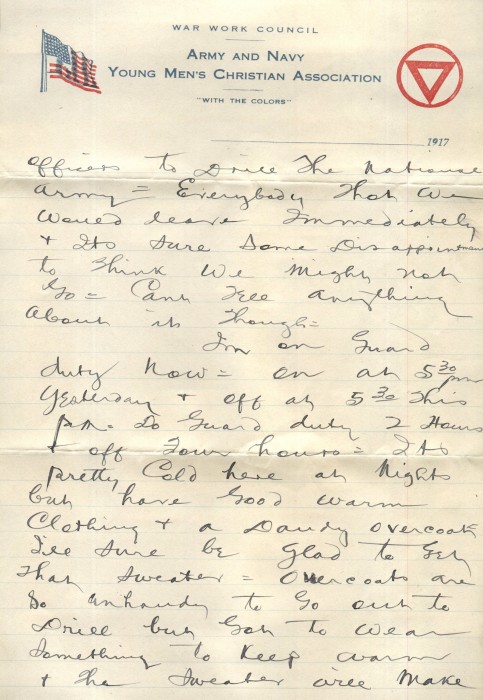 WAR WORK COUNCIL
ARMY AND NAVY
YOUNG MEN'S CHRISTIAN ASSOCIATION
"WITH THE COLORS"
1917
officers to Drill The National
Army = Everybody That We
Would leave Immediately
+ Its sure Some Disappointment
to Think We Might not
Go = Cant Tell anything
About it Though =
Im on Guard
duty Now = on at 5 30 pm
Yesterday + off at 5 30 This
pm. Do Guard duty 2 Hours
+ off Four hours = Its
pretty Cold here at Nights
but have Good warm
Clothing + a Dandy overcoat
I'll sure be Glad to Get
That sweater = Overcoats are
So unhandy to Go out to
Drill but Got to Wear
Something to Keep warm
+ The Sweater will Make